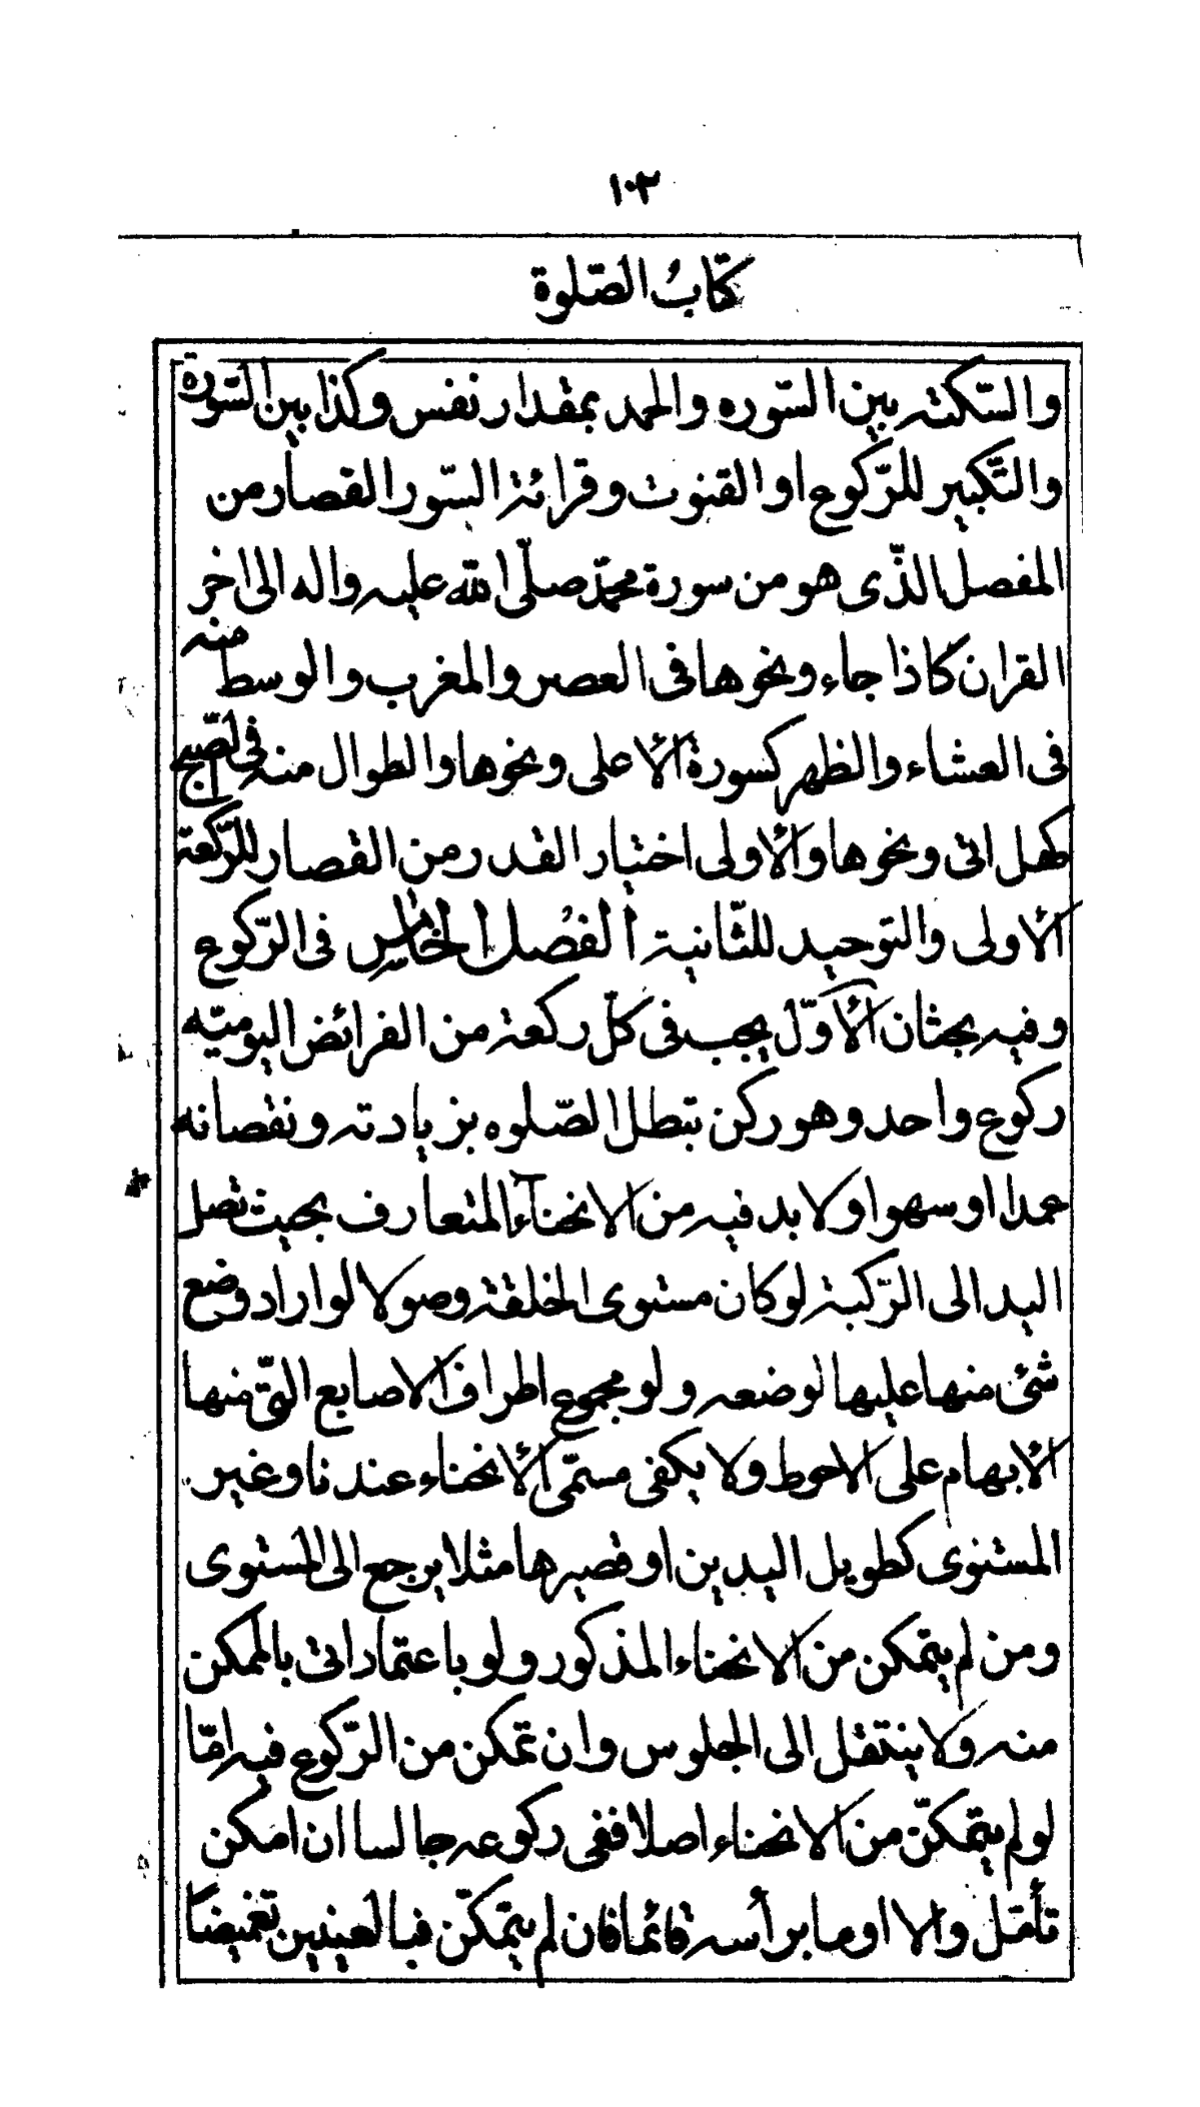 ١٠٣
كتاب الصّلوة
والسّكته بين السّوره والحمد بمقدار نفس وكذا بين السّورة
والتّكبير للرّكوع او القنوت وقرائة السّور القصار من
المفصل الذّى هو من سورة محمّد صلّى الله عليه واله الى اخر
القران كاذا جاء ونحوها فى العصر والمغرب والوسط منه
فى العشاء والظهر كسورة الأعلى ونحوها والطوال منه فى الصّبح
كهل اتى ونحوها والأولى اختيار القدر من القصار للرّكعة
الأولى والتوحيد للثّانية الفصل الخامس فى الرّكوع
وفيه بحثان الأوّل يجب فى كلّ ركعة من الفرائض اليوميّه
ركوع واحد وهو ركن تبطل الصّلوه بزيادته ونقصانه
عمدا او سهوا ولا بد فيه من الانحنآء المتعارف بحيث تصل
اليد الى الرّكبة لو كان مستوى الخلقة وصولا لو اراد وضع
شئ منها عليها لوضعه ولو مجموع اطراف الاصابع الّتى منها
الأبهام على الاحوط ولا يكفى مسمّى الأنحناء عندنا وغير
المستوى كطويل اليدين او قصيرها مثلا يرجع الى المستوى
ومن لم يتمكن من الانحناء المذكور ولو باعتماد اتى بالممكن
منه ولا ينتقل الى الجلوس وان تمكن من الرّكوع فيه امّا
لو لم يتمكّن من الانحناء اصلا ففى ركوعه جالسا ان امكن
تأمّل والا اومأ برأسه قائما فان لم يتمكّن فبالعينين تغميضا